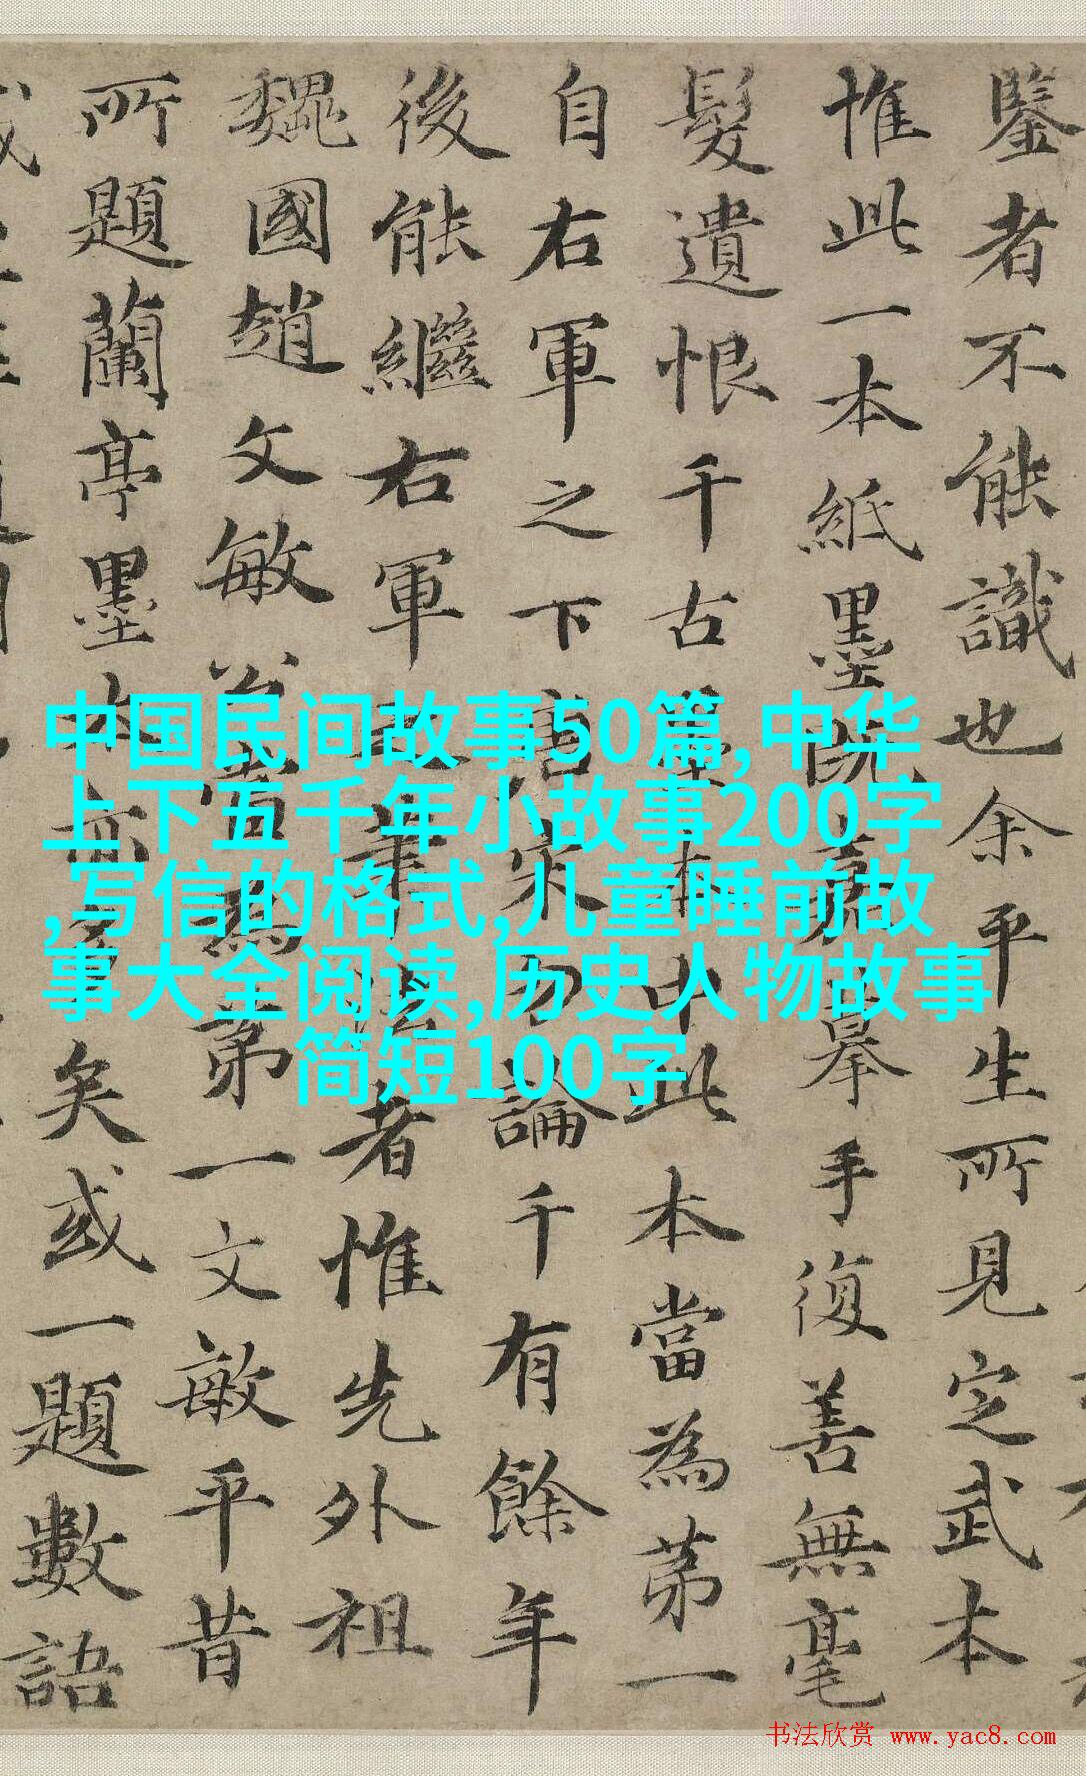 鑒者不能識也余平生所見定武本
惟此一本紙墨既嘉摹手復善無毫
髮遺恨千古墨本中此本當為苐一
自右軍之下唐宋勿論千有餘年
後能繼右軍之筆法者惟先外祖
魏國趙文敏公當為苐一文敏平昔
所題蘭亭墨本亦多矣或一題數語
中国民间故事50篇,中华
上下五千年小故事200字
,写信的格式,儿童睡前故
事大全阅读,历史人物故事
简短100字
书法欣赏 www.yac8.com